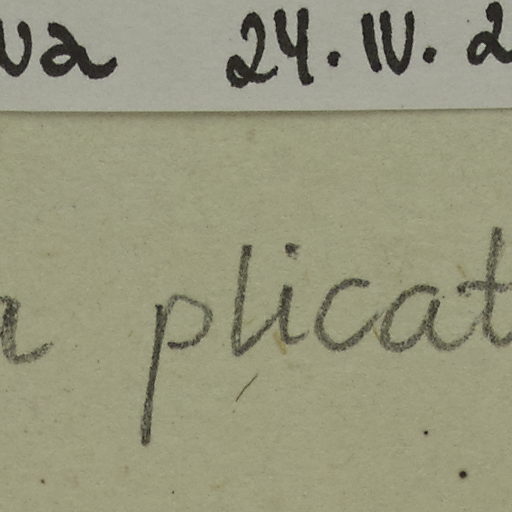 va 24.IV.2
a plicat